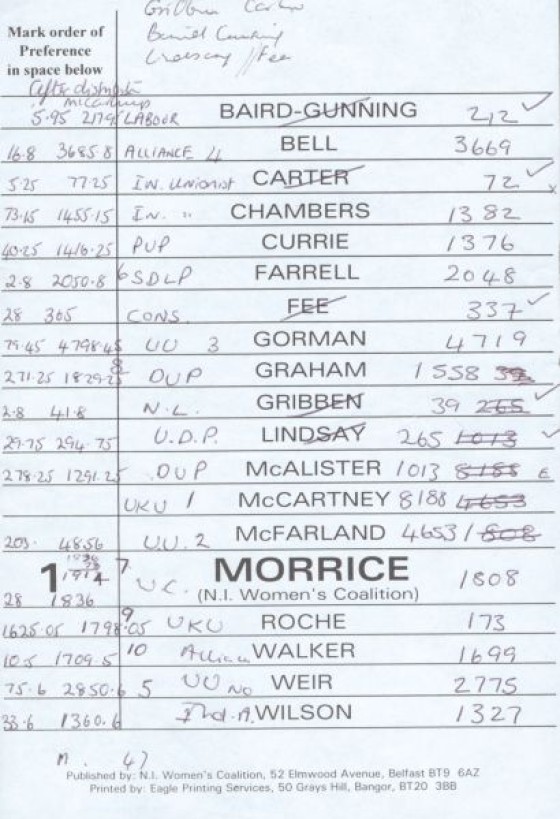 Gribben Carter
Baird Gunning
Lindsay // Fee
Mark order of
Preference
in space below
(after distrib
McCartney
5.95 2179 LABOUR BAIRD-GUNNING 212 ✓
16.8 3685.8 ALLIANCE 4 BELL 3669
5.25 77.25 IN. Unionist CARTER 72 ✓
73.15 1455.15 IN. " CHAMBERS 1382
40.25 1416.25 PUP CURRIE 1376
2.8 2050.8 6 SDLP FARRELL 2048
28 365 CONS. FEE 337 ✓
79.45 4798.45 UU 3 GORMAN 4719
271.25 1829.25 8 DUP GRAHAM 1558 39
2.8 41.8 N.L. GRIBBEN 39 265 ✓
29.75 294.75 U.D.P. LINDSAY 265 1013 ✓
278.25 1291.25 DUP McALISTER 1013 8188
UKU 1 McCARTNEY 8188 4653
203. 4856 U.U. 2 McFARLAND 4653 1808
1 7 MORRICE 1808
28 1836 (N.I. Women's Coalition)
1625.05 1798.05 9 UKU ROCHE 173
10.5 1709.5 10 Alliance WALKER 1699
75.6 2850.6 5 UU No WEIR 2775
33.6 1360.6 WILSON 1327
M. 47
Published by: N.I. Women's Coalition, 52 Elmwood Avenue, Belfast BT9 6AZ
Printed by: Eagle Printing Services, 50 Grays Hill, Bangor, BT20 3BB